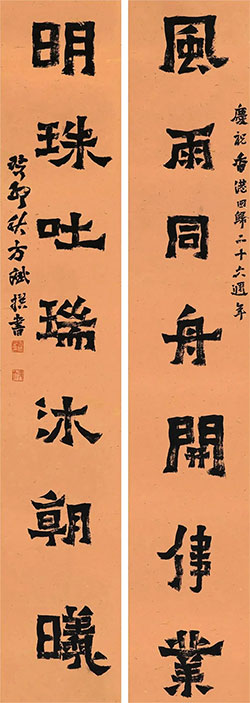 慶祝香港回歸二十六週年
風雨同舟開偉業
明珠吐瑞沐朝曦
癸卯秋方斌撰書